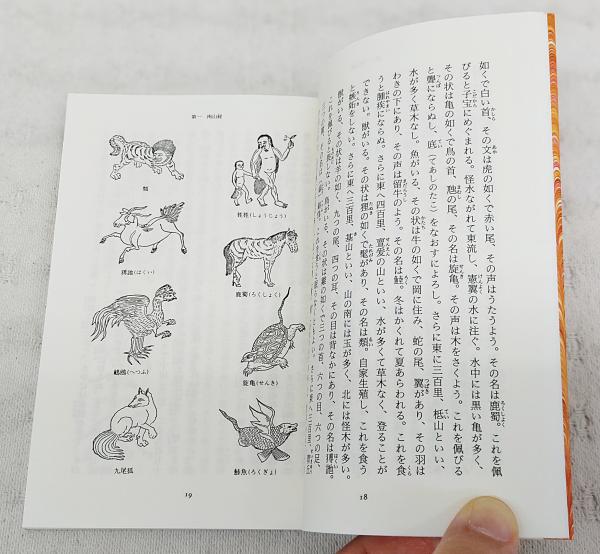 如くで白い首、その文は虎の如くで赤い尾、その声はうたうよう。その名は鹿蜀。これを佩
びると子宝にめぐまれる。怪水ながれて東流し、憲翼の水に注ぐ。水中には黒い亀が多く、
その状は亀の如くで鳥の首、虺の尾、その名は旋亀。その声は木をさくよう。これを佩びる
と聾にならぬし、底(てあしのたこ)をなおすによろし。さらに東に三百里、柢山といい、
水が多く草木なし。魚がいる、その状は牛の如くで岡に住み、蛇の尾、翼があり、その羽は
わきの下にあり、その声は留牛のよう。その名は鯥。冬はかくれて夏あらわれる。これを食
うと腫疾にならぬ。さらに東へ四百里、亶爰の山といい、水が多くて草木なく、登ることが
できない。獣がいる。その状は狸の如くで髦があり、その名は類。自家生殖し、これを食う
と嫉妬しない。さらに東へ三百里、基山といい、山の南には玉が多く、北には怪木が多い。
獣がいる、その状は羊の如く、九つの尾、四つの耳、その目は背なかにあり、その名は猼訑。
これを佩びると畏れない。鳥がいる、その状は雞の如くで三つの首、六つの目、六つの足、
18
第一 南山経
狌狌(しょうじょう)
鹿蜀(ろくしょく)
旋亀(せんき)
鯥魚(ろくぎょ)
類
猼訑(はくい)
鵸鵂(へつふ)
九尾狐
19